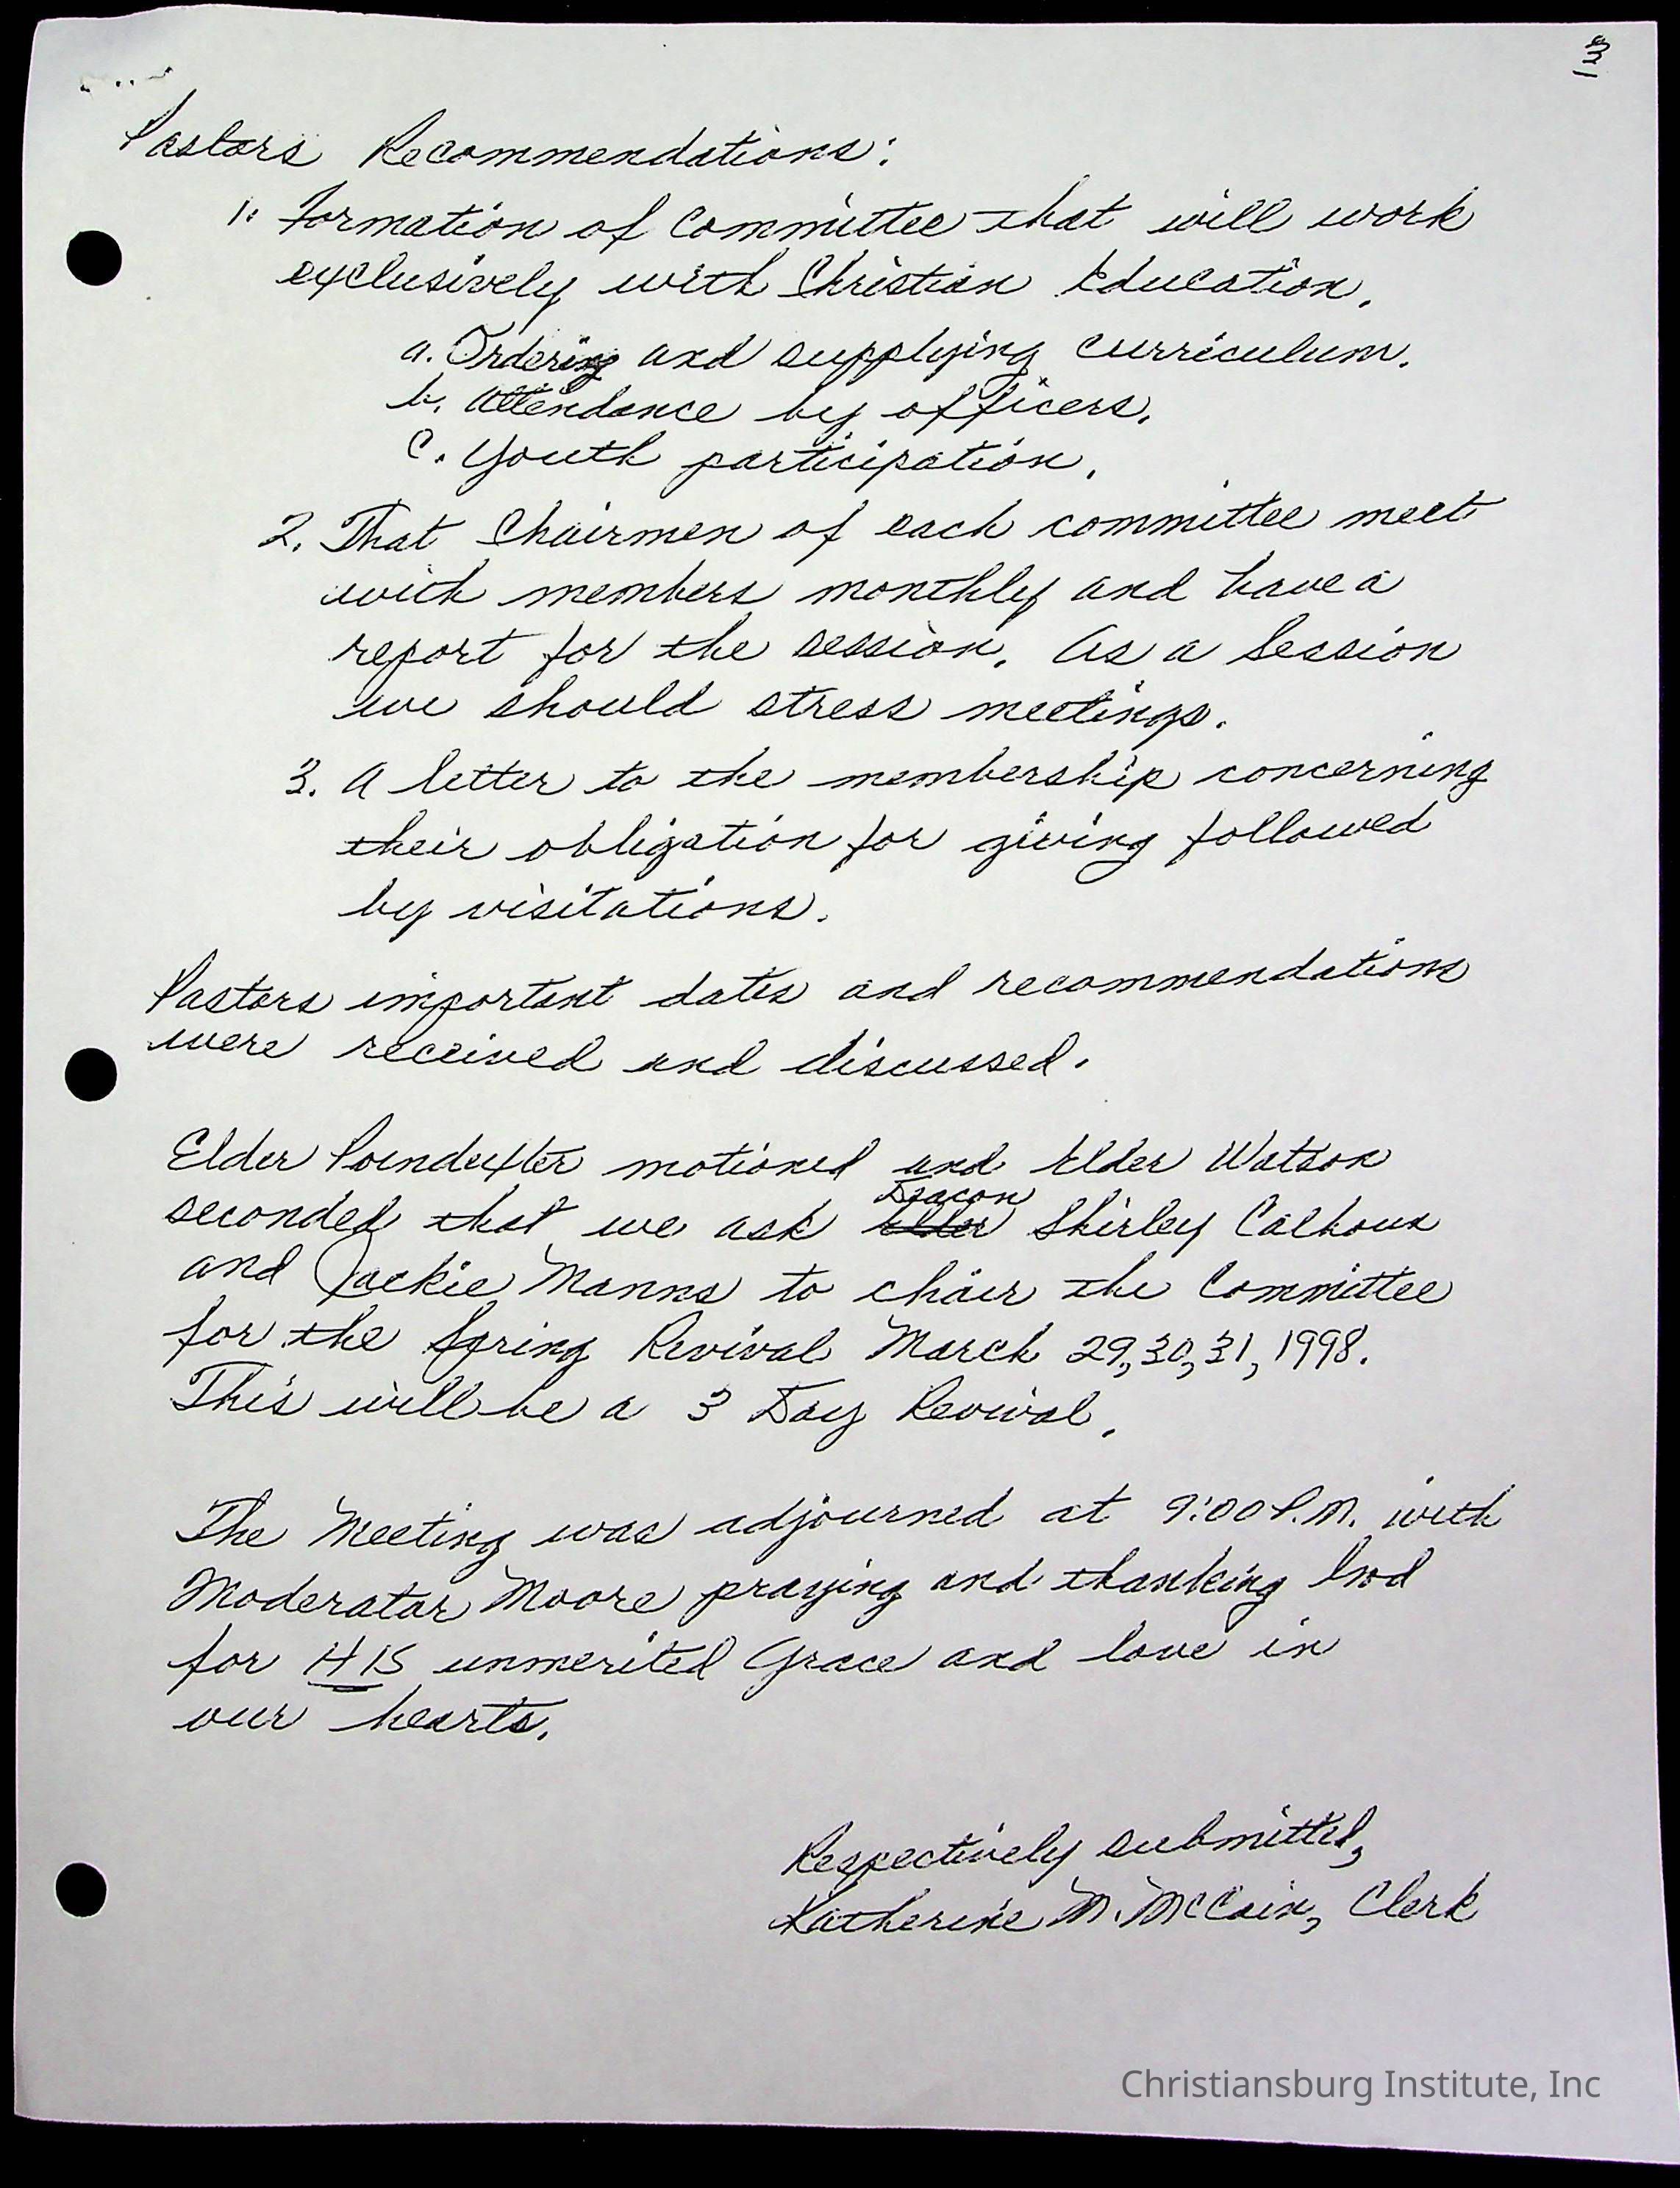 3
Pastors Recommendations:
1. Formation of Committee that will work
exclusively with Christian Education.
a. Ordering and supplying curriculum.
b. Attendance by officers.
c. Youth participation.
2. That Chairmen of each committee meet
with members monthly and have a
report for the session. As a Session
we should stress meetings.
3. A letter to the membership concerning
their obligation for giving followed
by visitations.
Pastors important dates and recommendations
were received and discussed.
Elder Poindexter motioned and Elder Watson
Deacon
seconded that we ask Elder Shirley Calhoun
and Jackie Manns to chair the Committee
for the Spring Revival March 29, 30, 31, 1998.
This will be a 3 Day Revival.
The Meeting was adjourned at 9:00 P.M. with
Moderator Moore praying and thanking God
for HIS unmerited Grace and love in
our hearts.
Respectively submitted,
Katherine M. McCain, Clerk
Christiansburg Institute, Inc